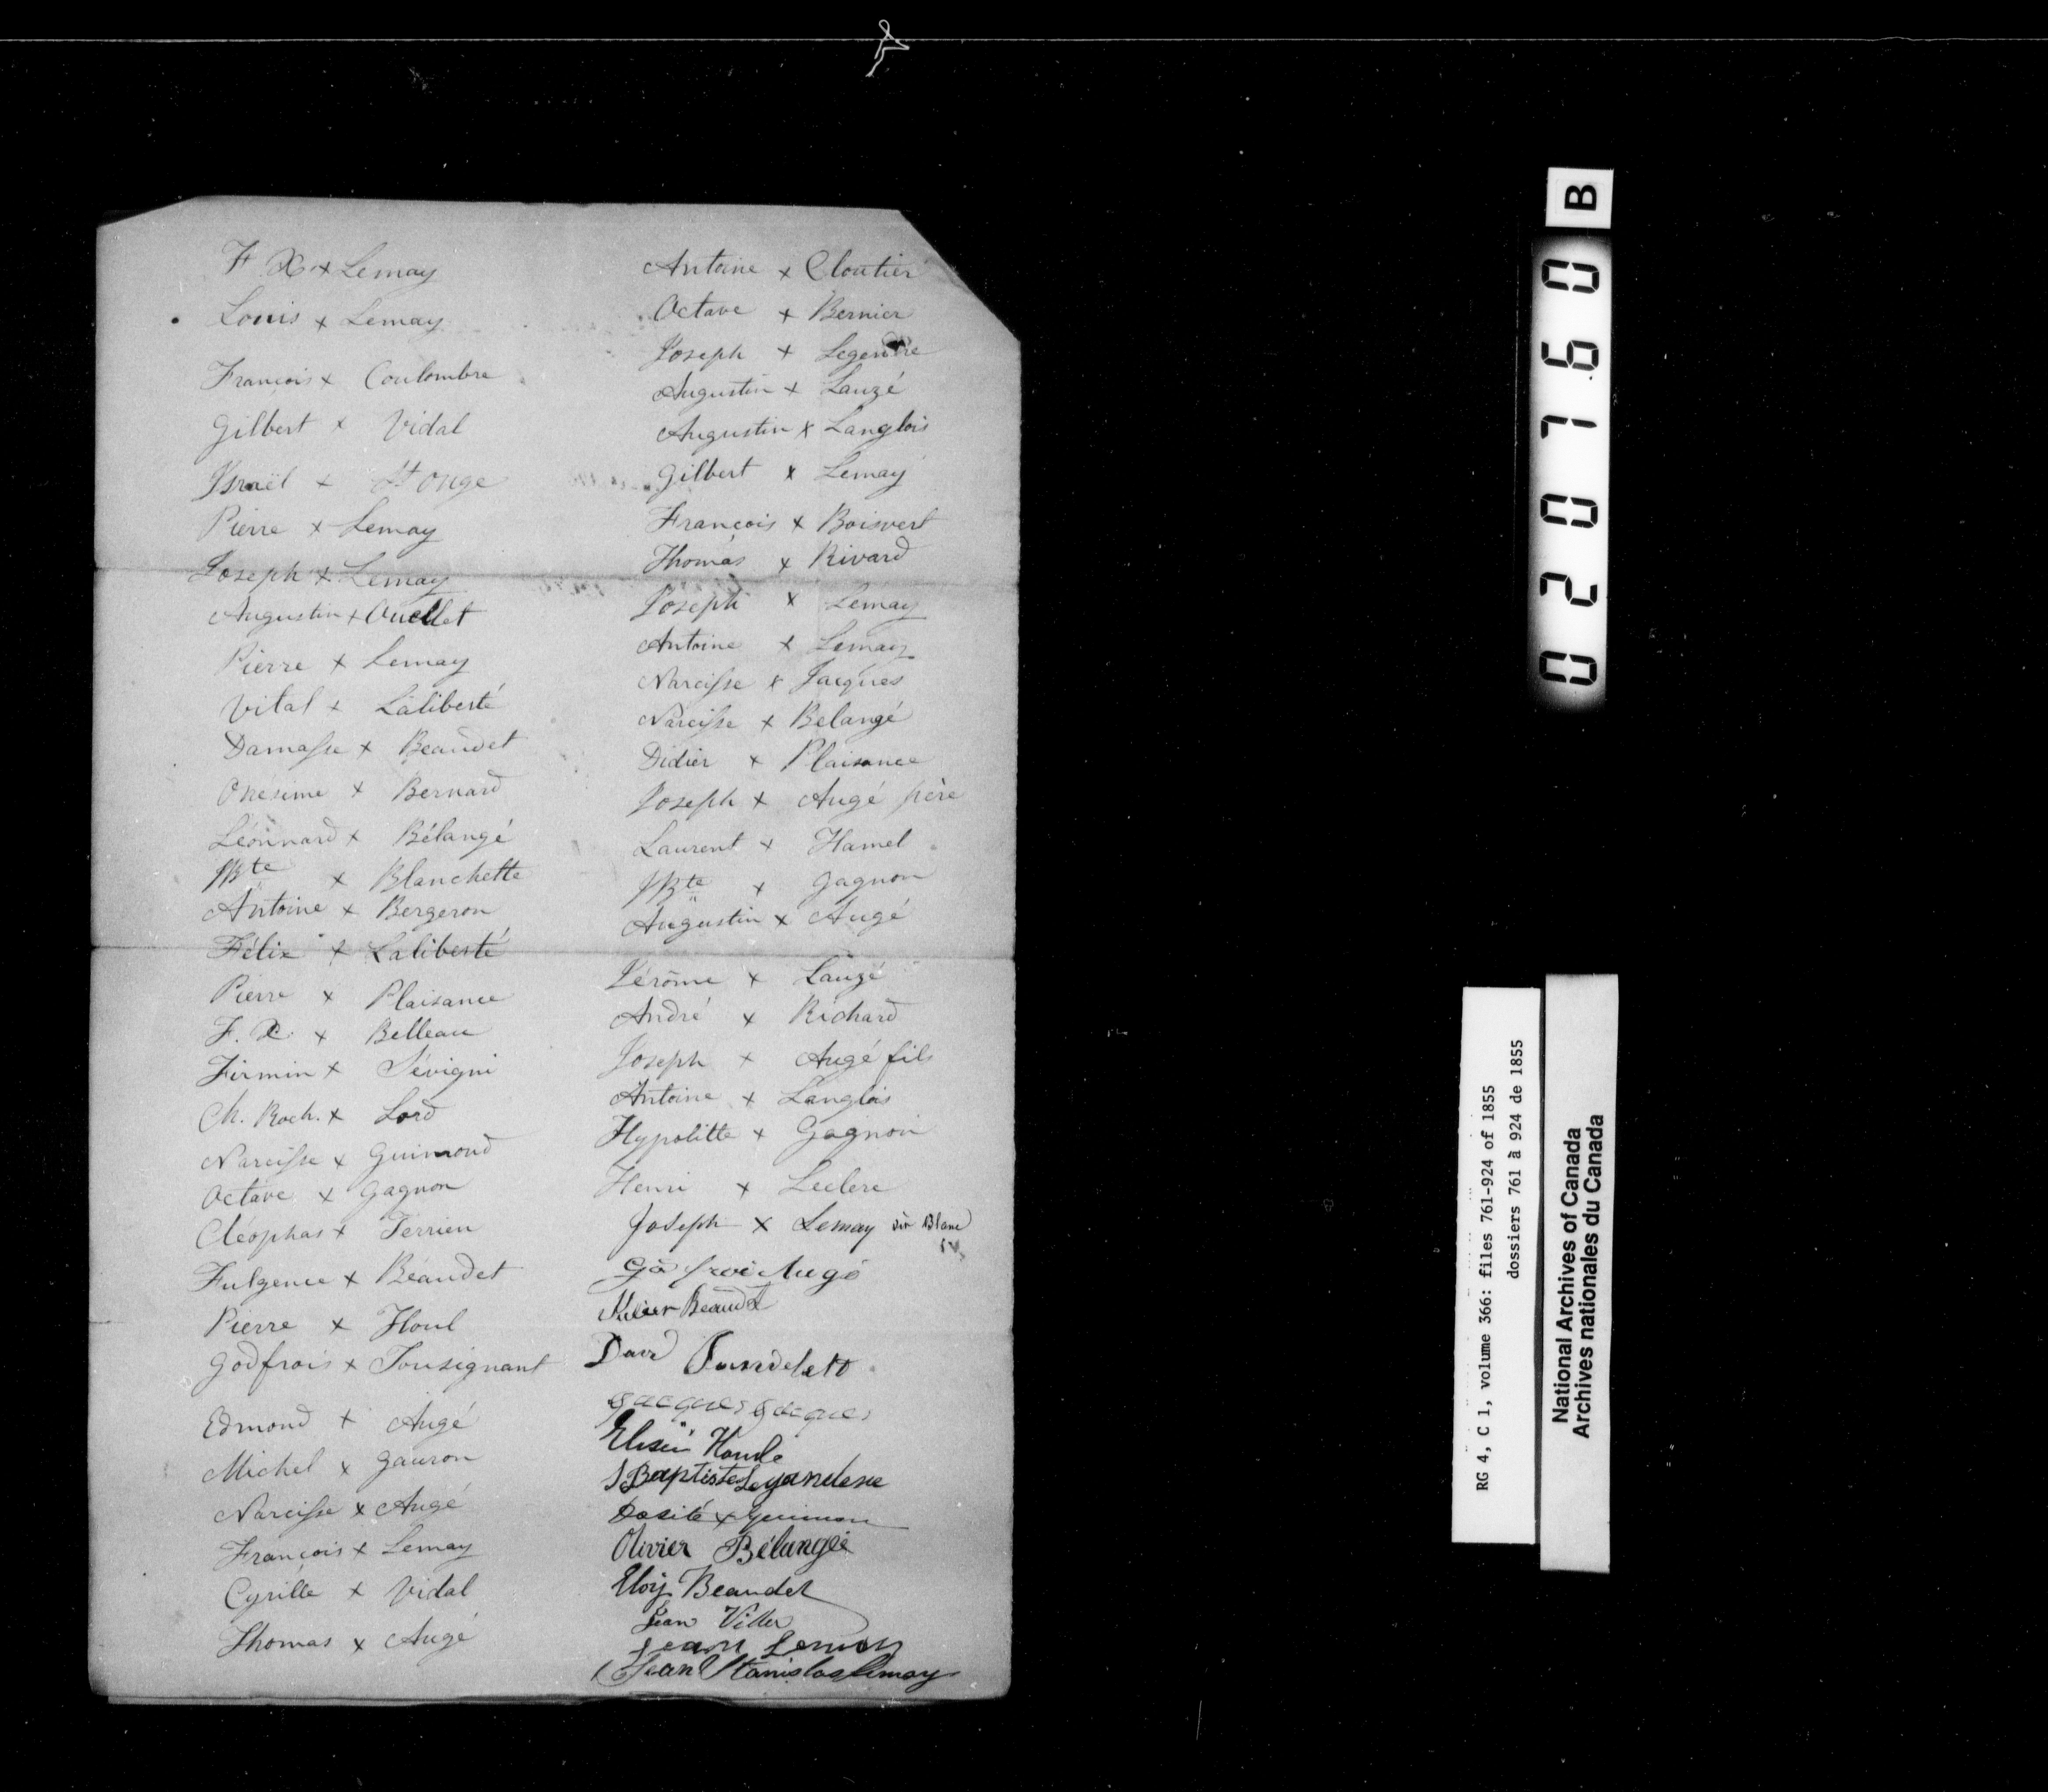 F X x Lemay
Louis x Lemay
François x Coulombre
Gilbert x Vidal
Israël x St Onge
Pierre x Lemay
Joseph x Lemay
Augustin x Ouellet
Pierre x Lemay
Vital x Laliberté
Damasse x Beaudet
Onésime x Bernard
Léonnard x Bélangé
JBte x Blanchette
Antoine x Bergeron
Félix x Laliberté
Pierre x Plaisance
F. X. x Belleau
Firmin x Sévigni
Ch. Roch. x Lord
Narcisse x Guimond
Octave x Gagnon
Cléophas x Terrien
Fulgence x Beaudet
Pierre x Houl
Godfrois x Tousignant
Edmond x Augé
Michel x Gauron
Narcisse x Augé
François x Lemay
Cyrille x Vidal
Thomas x Augé
Antoine x Cloutier
Octave x Bernier
Joseph x Legendre
Augustin x Lauzé
Augustin x Langlois
Gilbert x Lemay
François x Boisvert
Thomas x Rivard
Joseph x Lemay
Antoine x Lemay
Narcisse x Jacques
Narcisse x Belangé
Didier x Plaisance
Joseph x Augé père
Laurent x Hamel
JBte x Gagnon
Augustin x Augé
Jérôme x Lauzé
André x Richard
Joseph x Augé fils
Antoine x Langlois
Hypolitte x Gagnon
Henri x Leclerc
Joseph x Lemay dit Blanc
Augé
Beaudet
David
Jacques Jacques
Houle
J Baptiste Legendre
Dosité x Guimon
Olivier Bélangée
Eloij Beaudet
Jean
Jean Lemay
Jean Stanislas Lemay
B
020760
RG 4, C 1, volume 366: files 761-924 of 1855
dossiers 761 à 924 de 1855
National Archives of Canada
Archives nationales du Canada